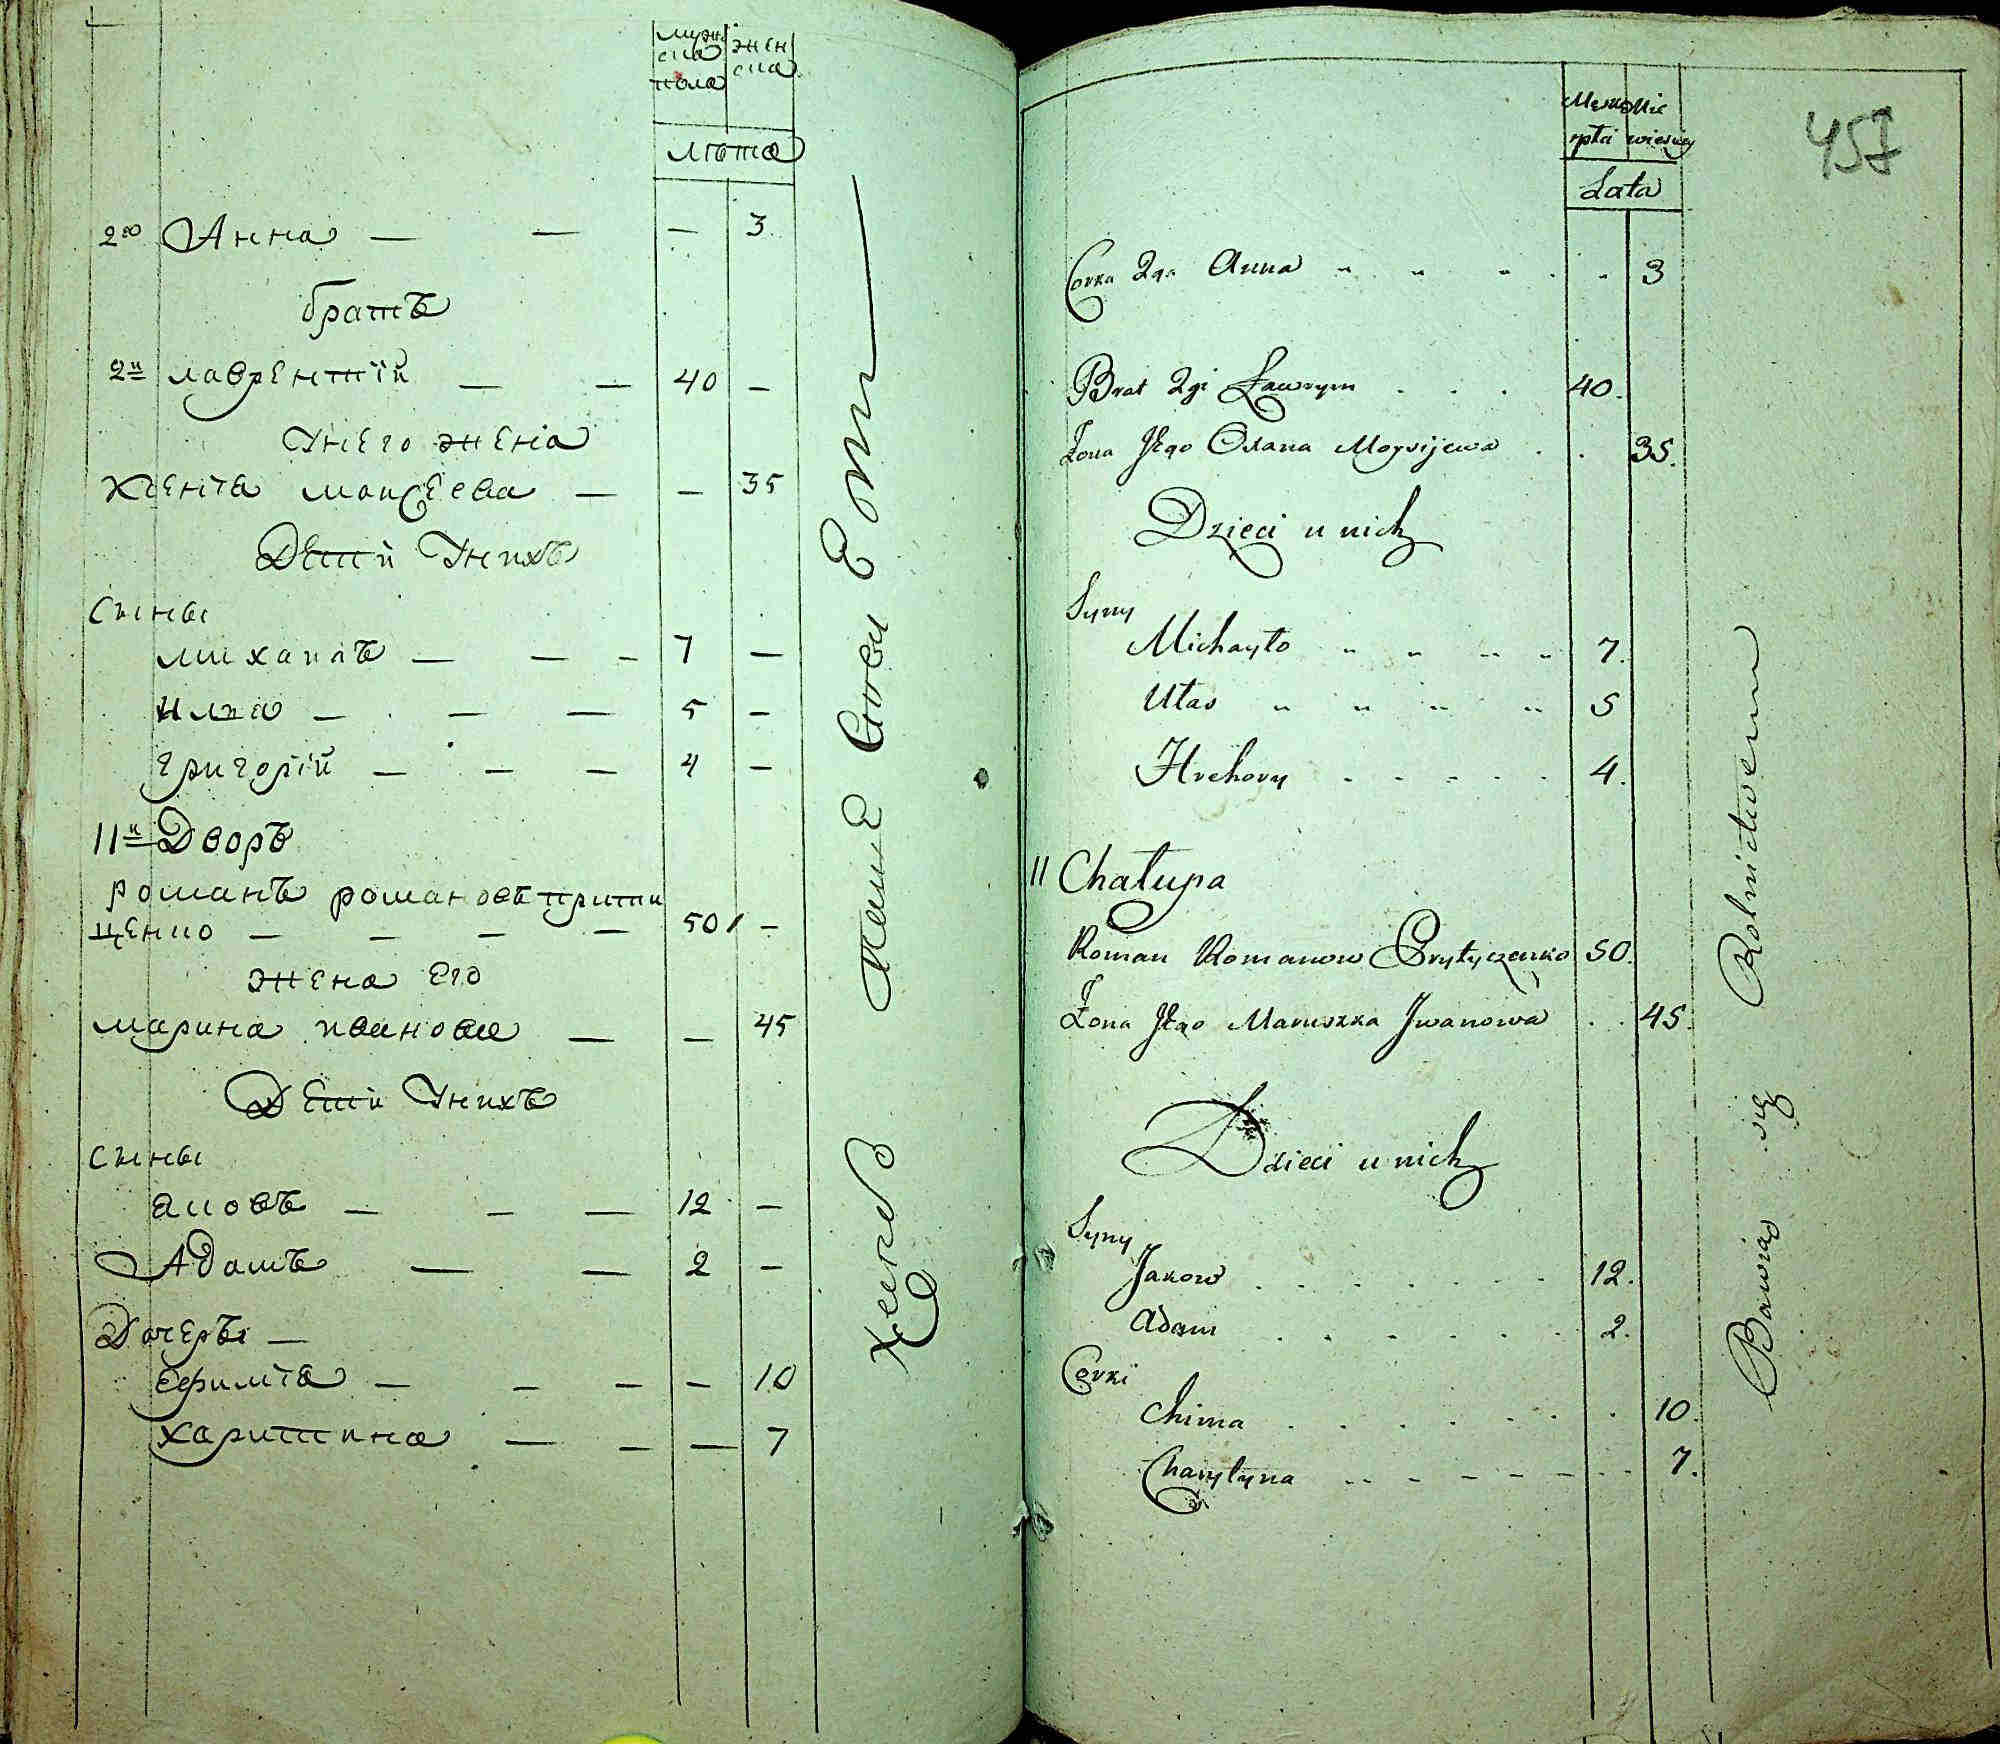 мужеска пола
женска
лѣта
2я Анна — — — 3
братъ
2й лаврентій — — 40 —
У него жена
Ксенія моисеева — — 35
Дети У нихъ
Сыны
михаилъ — — — 7 —
илья — — — 5 —
григорій — — — 4 —
11й Дворъ
романъ романовъ прити
ченко — — — — 50 —
жена его
марина иванова — — 45
Дети У нихъ
Сыны
яковъ — — — 12 —
Адамъ — — 2 —
Дочеры —
ефимія — — — — 10
харитина — — — 7
457
Męzko
Nie
płci
wiesciey
Lata
Corka 2ga Anna 3
Brat 2gi Ławryn 40.
Żona Jego Oxana Moysijewa 35.
Dzieci u nich
Syny
Michayło 7.
Ułas 5
Hrehory 4.
11 Chałupa
Roman Romanow Prytyczenko 50.
Żona Jego Maruszka Jwanowa 45.
Dzieci u nich
Syny
Jakow 12.
Adam 2.
Corki
Chima 10.
Charytyna 7.
Bawią się Rolnictwem